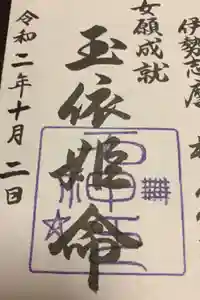 伊勢志摩
女願成就
玉依姫命
令和二年十月二日
神玉